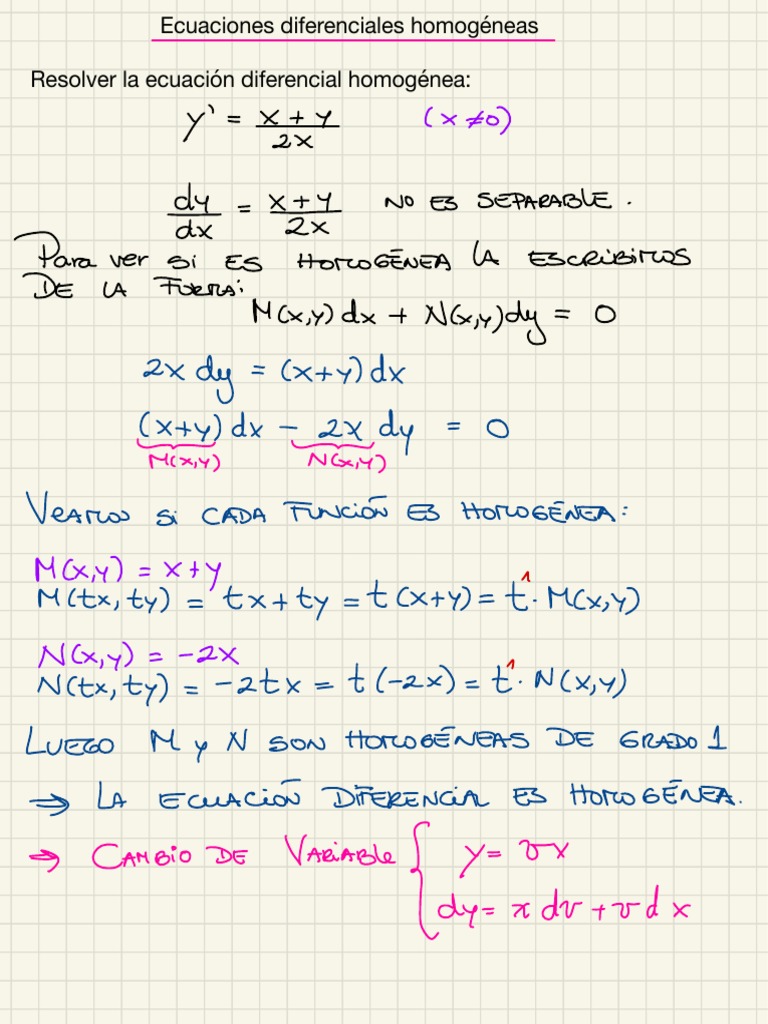 Ecuaciones diferenciales homogéneas
Resolver la ecuación diferencial homogénea:
y' = (x + y)/(2x) (x ≠ 0)
dy/dx = (x + y)/(2x) NO ES SEPARABLE.
Para ver si es HOMOGÉNEA LA ESCRIBIMOS
DE LA FORMA:
M(x,y) dx + N(x,y) dy = 0
2x dy = (x+y) dx
(x+y) dx - 2x dy = 0
M(x,y) N(x,y)
VEAMOS SI CADA FUNCIÓN ES HOMOGÉNEA:
M(x,y) = x+y
M(tx, ty) = tx + ty = t(x+y) = t¹· M(x,y)
N(x,y) = -2x
N(tx, ty) = -2tx = t(-2x) = t¹· N(x,y)
LUEGO M y N SON HOMOGÉNEAS DE GRADO 1
⇒ LA ECUACIÓN DIFERENCIAL ES HOMOGÉNEA.
⇒ CAMBIO DE VARIABLE { y = vx
dy = x dv + v dx